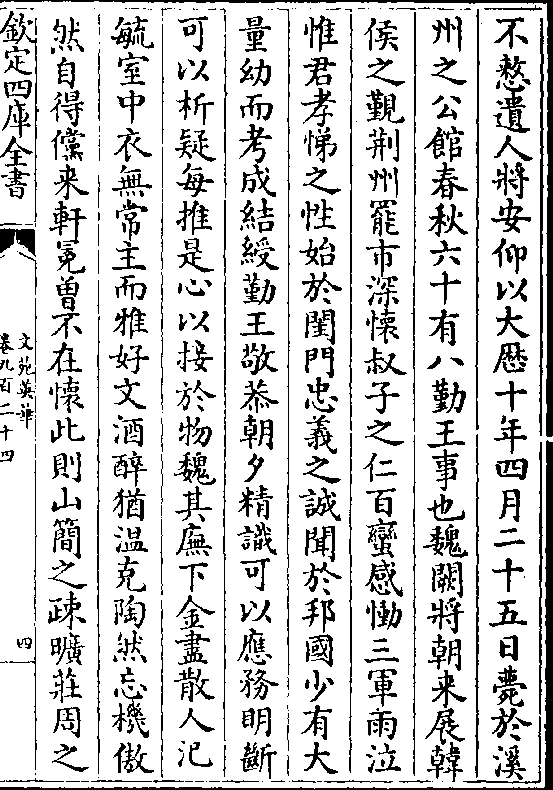 不憗遺人將安仰以大厯十年四月二十五日薨於溪
州之公館春秋六十有八勤王事也魏闕將朝来展韓
侯之覲荆州罷市深懷叔子之仁百蠻感慟三軍雨泣
惟君孝悌之性始於閨門忠義之誠聞於邦國少有大
量幼而考成結綬勤王敬恭朝夕精識可以應務明斷
可以析疑每推是心以接於物魏其廡下金盡散人氾
毓室中衣無常主而雅好文酒醉猶温克陶然忘機傲
然自得儻来軒冕曽不在懷此則山簡之疎曠莊周之
欽定四庫全書
文苑英華
卷九百二十四
四